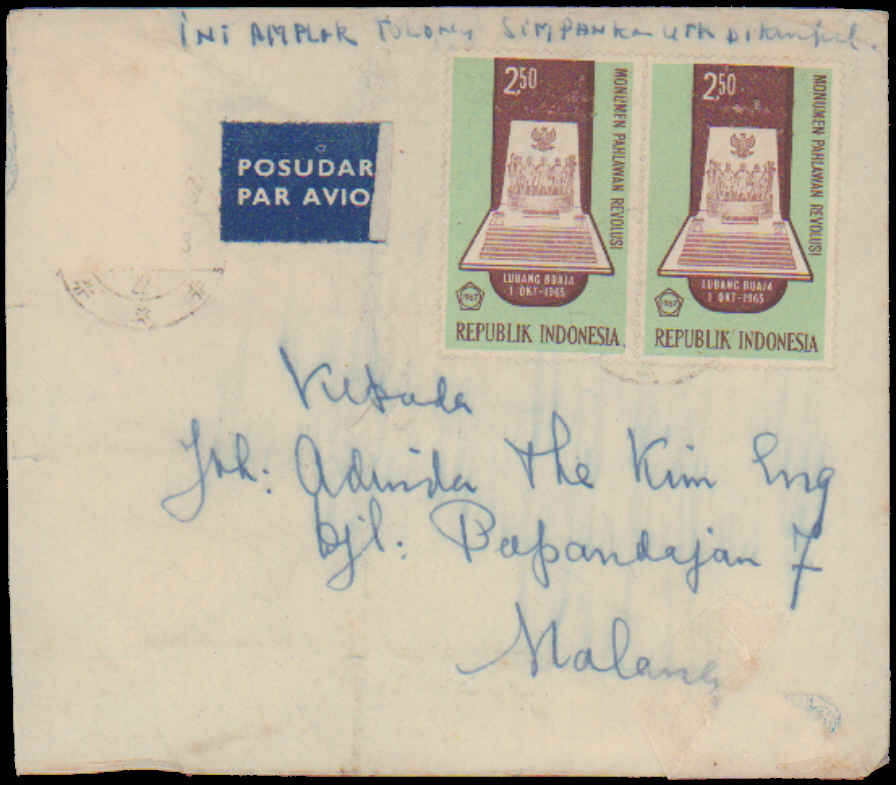 INI AMPLOP TOLONG SIMPANKAN UTK
POSUDAR
PAR AVIO
2,50
MONUMEN PAHLAWAN REVOLUSI
LUBANG BUAJA
1 OKT-1965
1967
REPUBLIK INDONESIA
2,50
MONUMEN PAHLAWAN REVOLUSI
LUBANG BUAJA
1 OKT-1965
1967
REPUBLIK INDONESIA
Kepada
Jth: Adinda The Kim Eng
Djl: Papandajan 7
Malang